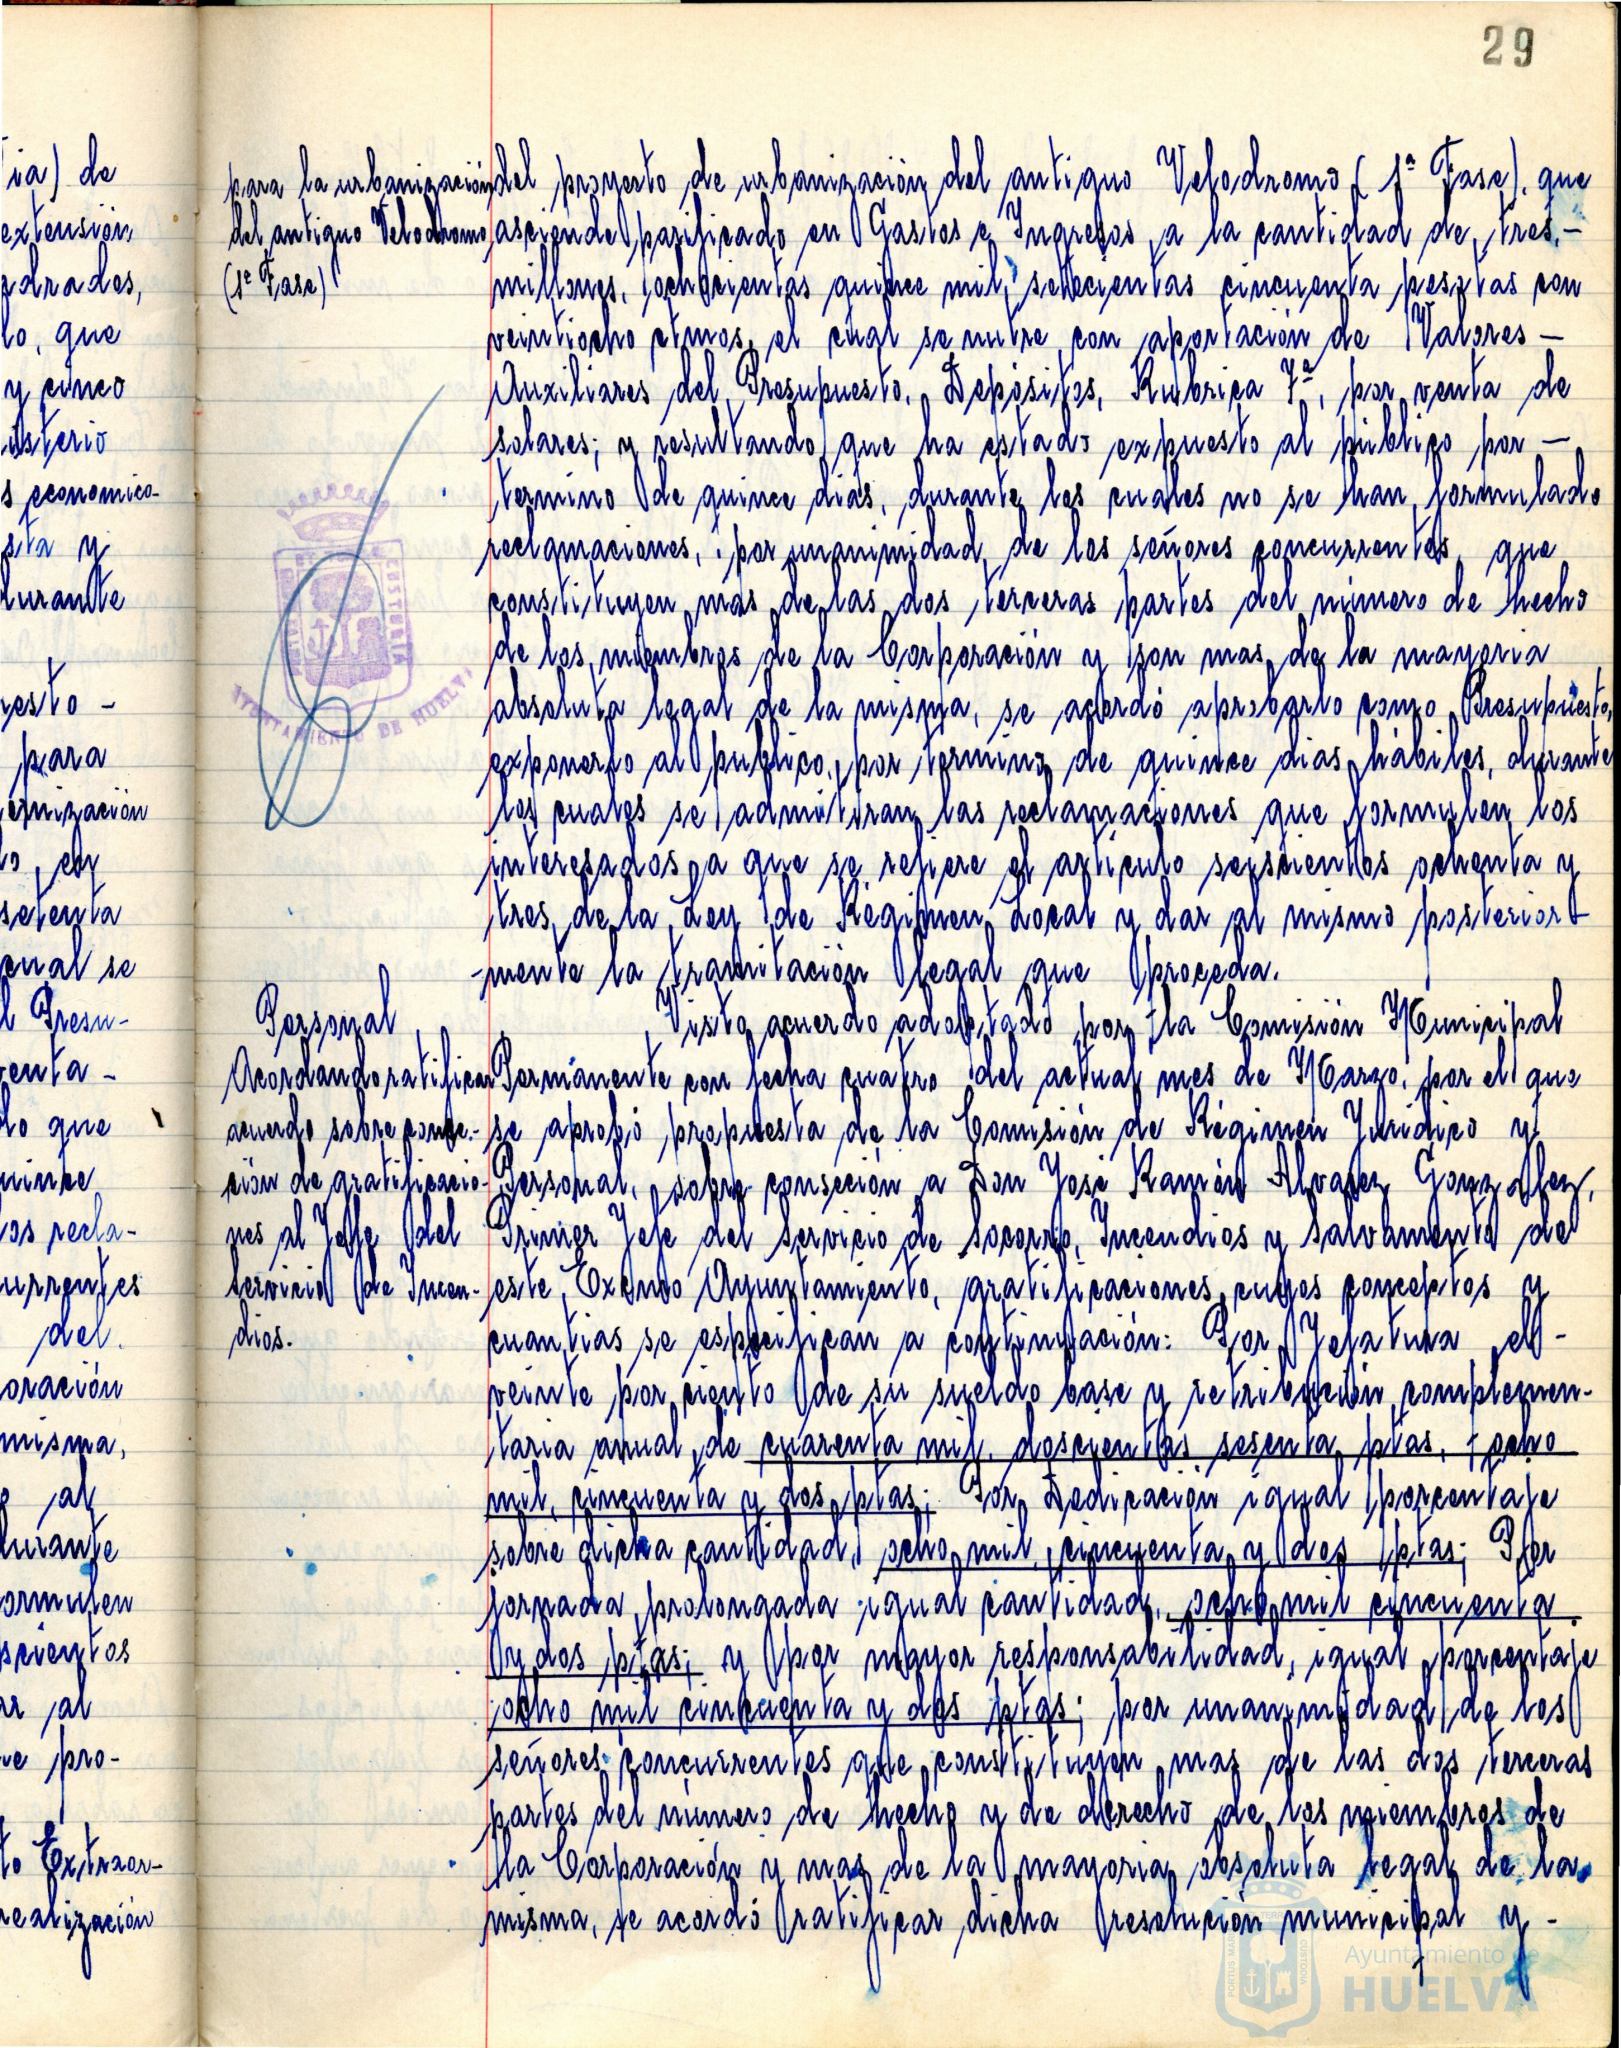 29
ia) de
extensión
adrados,
lo, que
y cinco
isterio
s economico-
sta y
durante
uesto -
para
ernización
o, en
setenta
cual se
l Presu-
venta -
do que
uince
los recla-
urrentes
del
oración
misma,
al
durante
ormulen
scientos
ar al
ue pro-
to Extraor-
realización
para la urbanización
del antiguo Velodromo
(1ª Fase)
del proyecto de urbanización del antiguo Velodromo (1ª Fase), que
asciende parificado en Gastos e Ingresos, a la cantidad de, tres,-
millones, ochocientas quince mil, setecientas cincuenta pesetas con
veintiocho ctmos, el cual se nutre con aportación de Valores -
Auxiliares del Presupuesto, Depósitos, Rubrica 7ª, por venta de
solares; y resultando que ha estado expuesto al público por -
termino de quince dias, durante los cuales no se han formulado
reclamaciones, por unanimidad de los señores concurrentes, que
constituyen mas de las dos terceras partes del número de hecho
de los miembros de la Corporación y son mas de la mayoria
absoluta legal de la misma, se acordó aprobarlo como Presupuesto,
exponerlo al público, por termino de quince dias hábiles, durante
los cuales se admitiran las reclamaciones que formulen los
interesados a que se refiere el articulo seiscientos ochenta y
tres de la Ley de Régimen Local y dar al mismo posterior-
-mente la tramitación legal que proceda.
Personal
Acordando ratificar
acuerdo sobre conse.-
ción de gratificacio-
nes al Jefe del
Servicio de Incen-
dios.
Visto acuerdo adoptado por la Comisión Municipal
Permanente con fecha cuatro del actual mes de Marzo, por el que
se aprobó propuesta de la Comisión de Régimen Juridico y
Personal, sobre conseción a Don José Ramón Alvarez Gonzalez,
Primer Jefe del servicio de Socorro, Incendios y Salvamento de
este Excmo Ayuntamiento, gratificaciones cuyos conceptos y
cuantias se especifican a continuación: Por Jefatura el -
veinte por ciento de su sueldo base y retribución complemen-
taria anual de cuarenta mil, doscientas sesenta ptas, ocho
mil, cincuenta y dos ptas; Por Dedicación igual porcentaje
sobre dicha cantidad, ocho mil, cincuenta y dos ptas; Por
jornada prolongada igual cantidad, ocho mil cincuenta
y dos ptas; y por mayor responsabilidad, igual porcentaje
ocho mil cincuenta y dos ptas; por unanimidad de los
señores concurrentes que constituyen mas de las dos terceras
partes del número de hecho y de derecho de los miembros de
la Corporación y mas de la mayoria absoluta legal de la
misma, se acordó ratificar dicha resolución municipal y -
AYUNTAMIENTO DE HUELVA
Ayuntamiento de
HUELVA